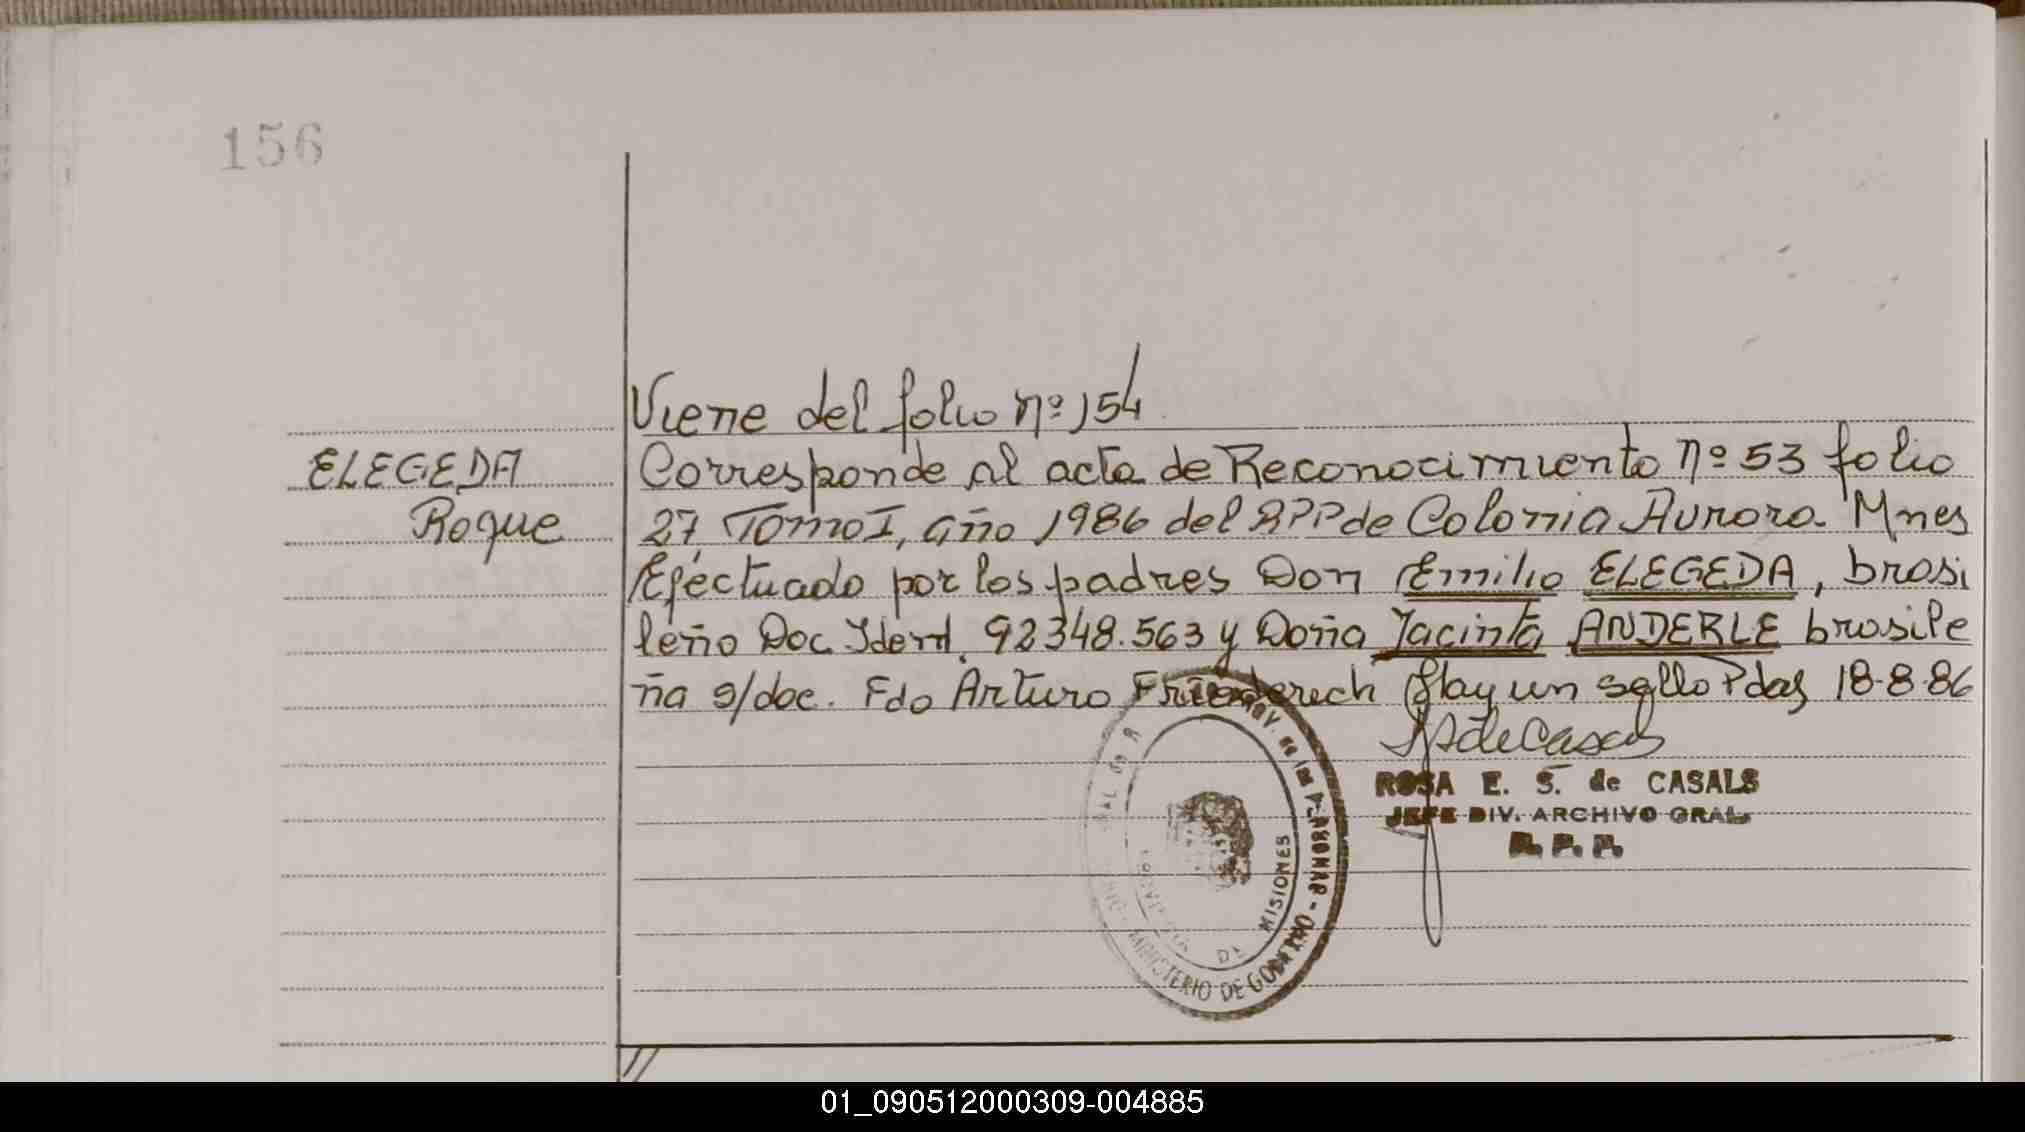 156
Viene del folio nº 154
ELEGEDA
Roque
Corresponde al acta de Reconocimiento nº 53 folio
27, Tomo I, año 1986 del RPP de Colonia Aurora Mnes
Efectuado por los padres Don Emilio ELEGEDA, brasi
leño Doc Ident. 92348.563 y Doña Jacinta ANDERLE brasile
ña s/doc. Fdo Arturo Friederech Hay un sello Pdas 18-8-86
ROSA E. S. de CASALS
JEFE DIV. ARCHIVO GRAL
R. P. P.
de las PERSONAS - MINISTERIO DE GOBIERNO
DE MISIONES
01_090512000309-004885